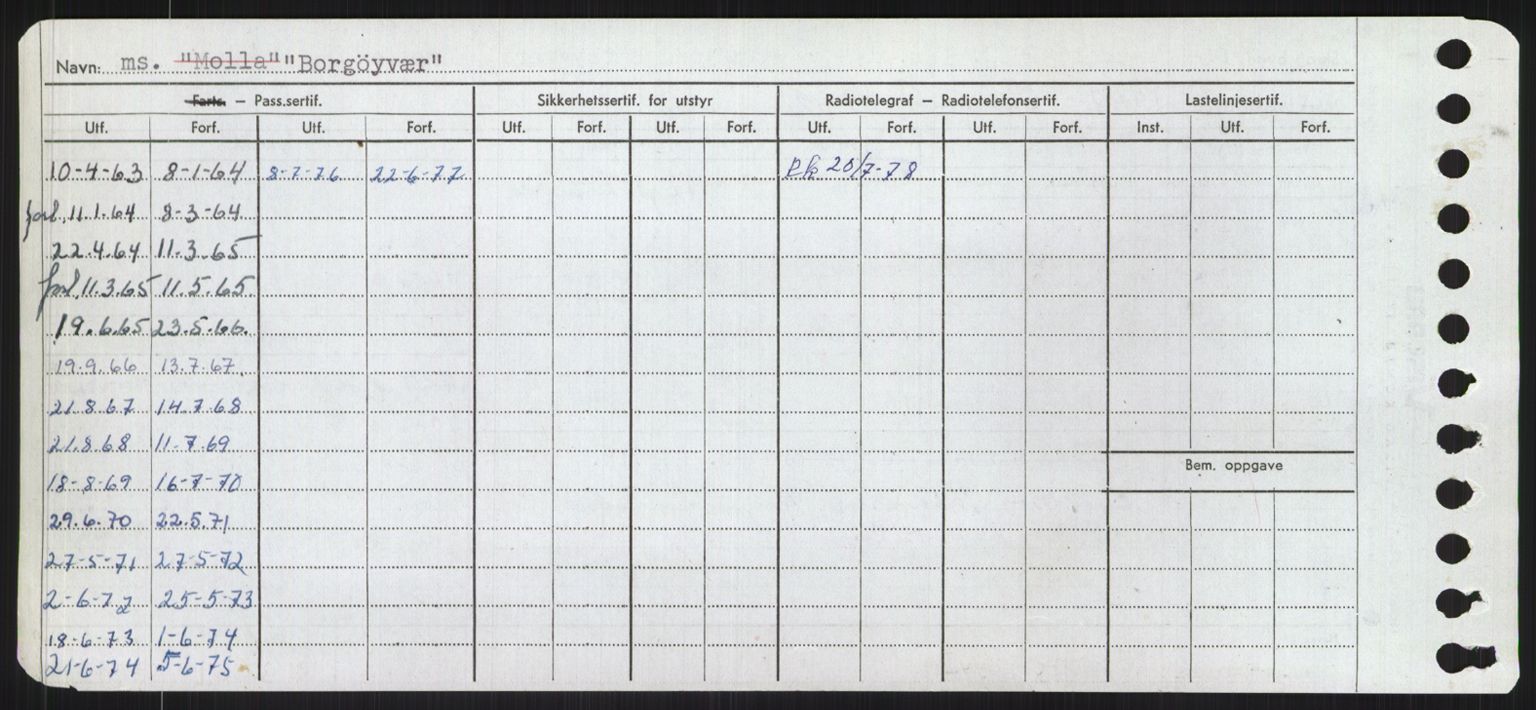 Navn: ms. "Molla" "Borgöyvær"
Farts. – Pass.sertif. Sikkerhetssertif. for utstyr Radiotelegraf – Radiotelefonsertif. Lastelinjesertif.
Utf. Forf. Utf. Forf. Utf. Forf. Utf. Forf. Utf. Forf. Utf. Forf. Inst. Utf. Forf.
10-4-63 8-1-64 8-7-76 22-6-77 20/7-78
forl. 11.1.64 8-3-64
22.4.64 11.3.65
forl. 11.3.65 11.5.65
19.6.65 23.5.66
19.9.66 13.7.67
21.8.67 14.7.68
21.8.68 11-7.69
Bem. oppgave
18-8-69 16-7-70
29.6.70 22.5.71
27-5-71 27-5-72
2-6-72 25-5-73
18-6-73 1-6-74
21-6-74 5-6-75